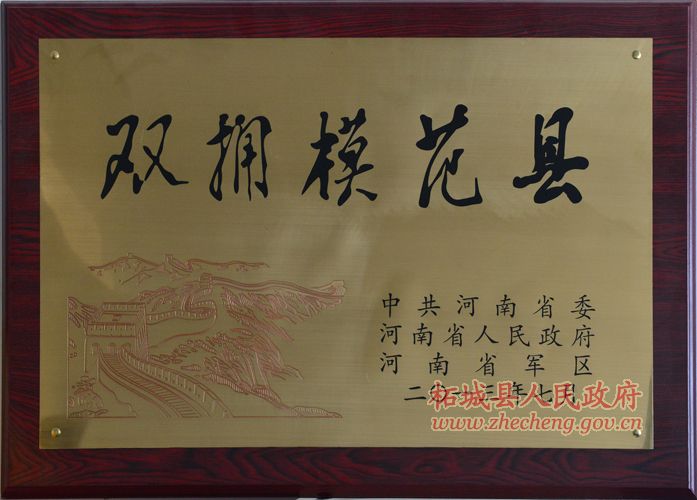 双拥模范县
中共河南省委
河南省人民政府
河南省军区
二〇一三年七月
柘城县人民政府
www.zhecheng.gov.cn